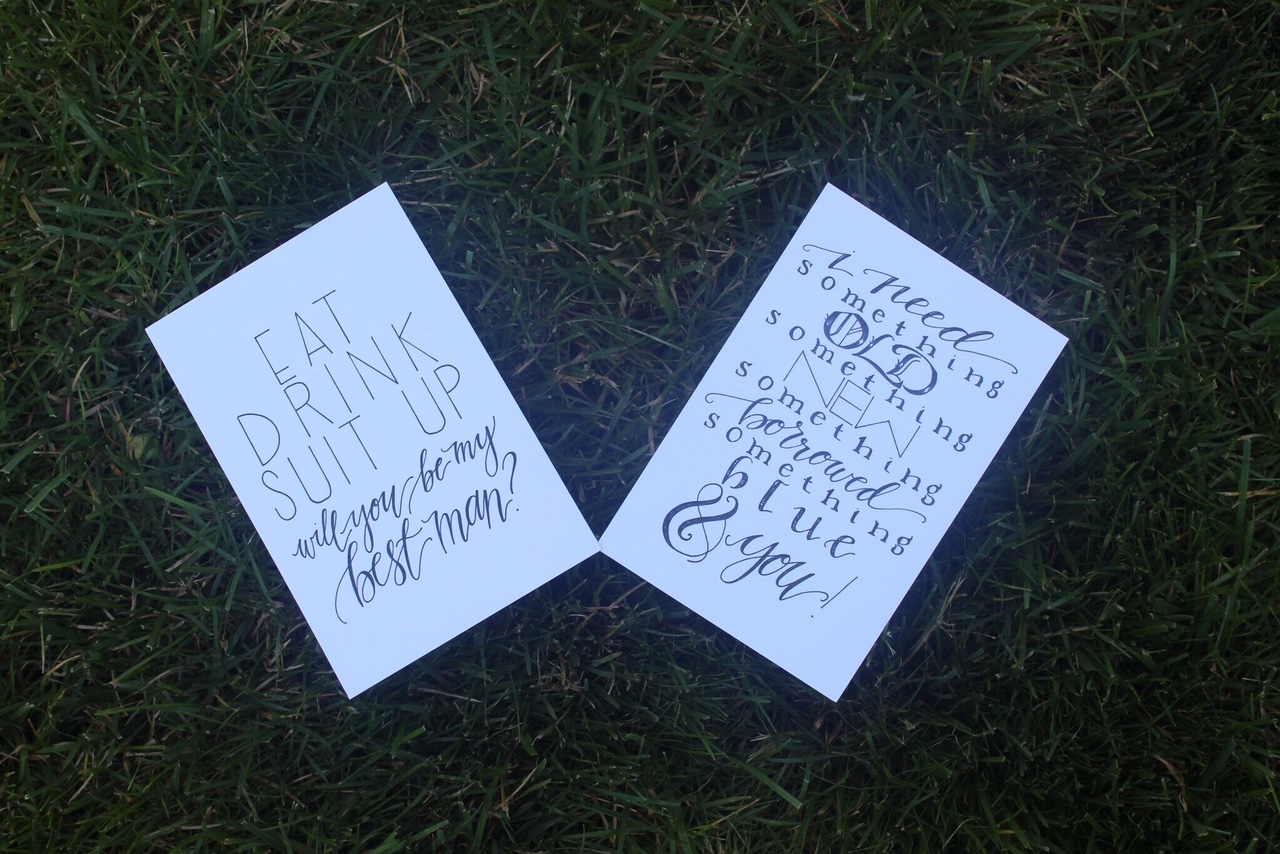 EAT
DRINK
SUIT UP
will you be my
best man?
i need
something
OLD
something
NEW
something
borrowed
something
blue
& you!